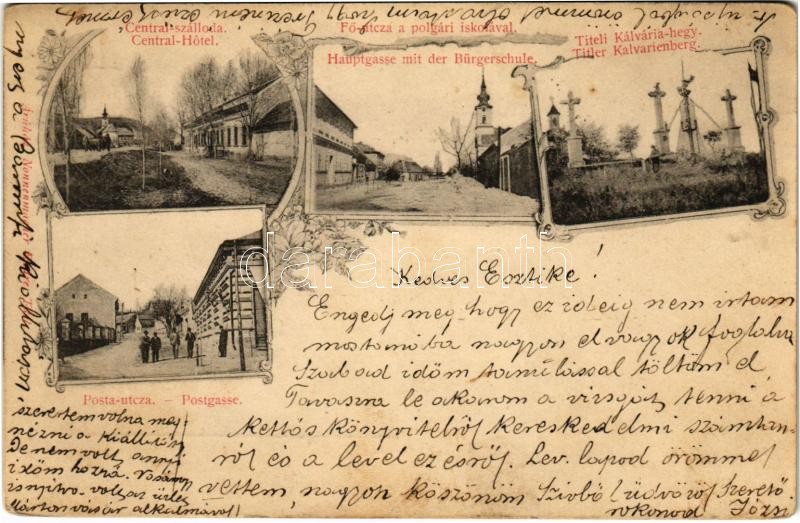 Central-szálloda.
Central-Hôtel.
Fő-utcza a polgári iskolával.
Hauptgasse mit der Bürgerschule.
Titeli Kálvária-hegy.
Titler Kalvarienberg.
Posta-utcza. – Postgasse.
darabanth
Kedves Esztike!
Engedj meg hogy ez ideig nem irtam
mostanába nagyon el vagyok foglalva
Szabad időm tanulással töltöm el
Tavaszra le akarom a vizsgát tenni a
kettős könyvitelről kereskedelmi számtan-
ról és a levelezésről. Lev. lapod örömmel
vettem, nagyon köszönöm Szivből üdvözöl szerető
rokonod Józsi
szerettem volna meg
nézni a Kiállitást
De nem volt annyi
időm hozzá. Vasárnap
is nyitva volt az üzlet
Márton vásár alkalmával!